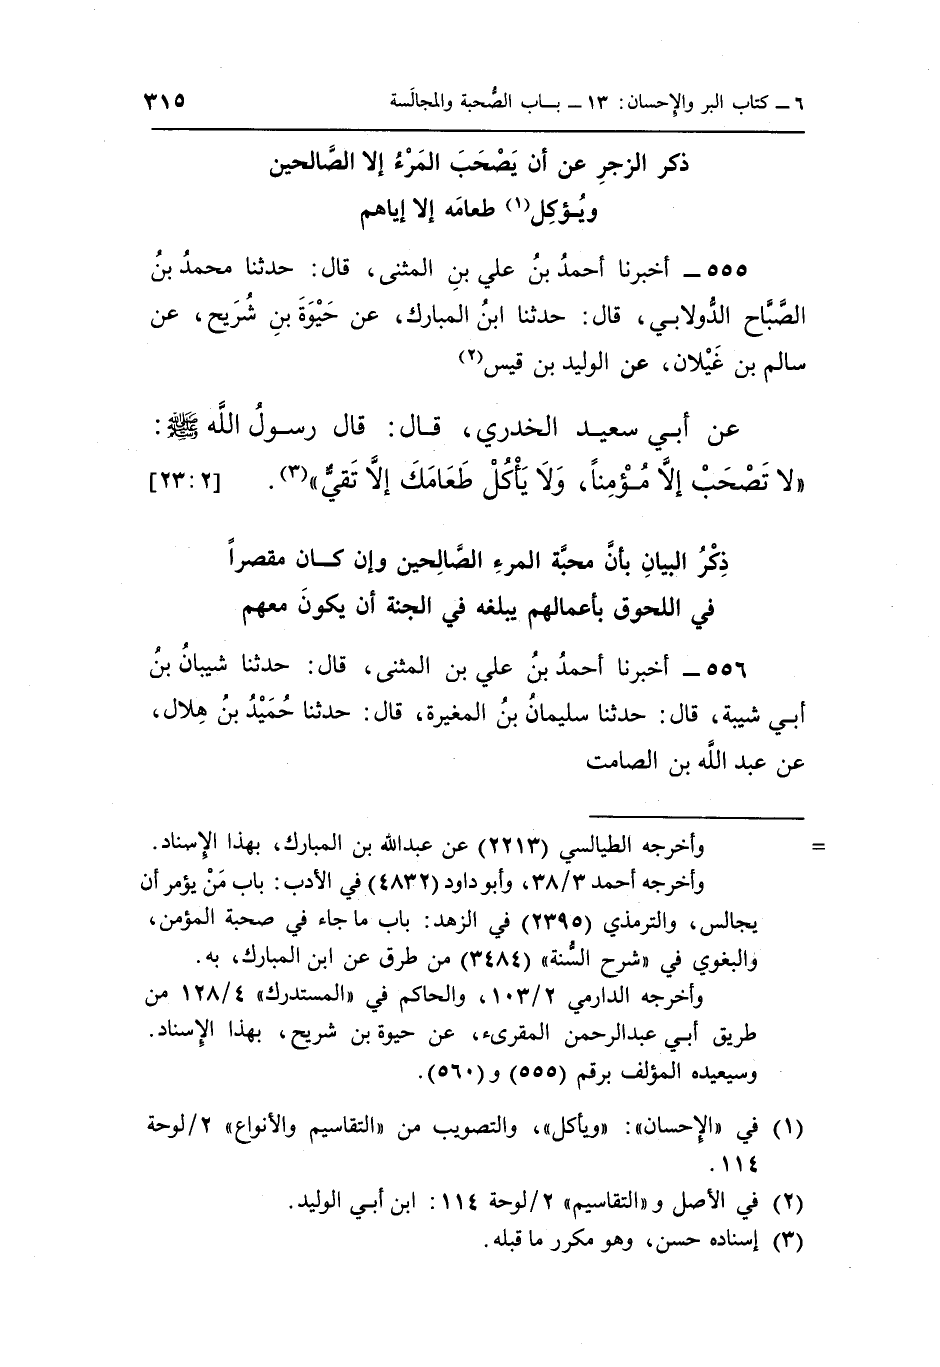 ٦ ــ كتاب البر والإحسان: ١٣ ــ بـاب الصُّحبة والمجالَسة ٣١٥
ذكر الزجرِ عن أن يَصْحَبَ المَرْءُ إلا الصَّالحين
ويُؤكِل(١) طعامَه إلا إياهم
٥٥٥ ــ أخبرنا أحمدُ بنُ علي بنِ المثنى، قال: حدثنا محمدُ بنُ
الصَّبَّاح الدُّولابي، قال: حدثنا ابنُ المبارك، عن حَيْوَةَ بنِ شُرَيح، عن
سالم بن غَيْلان، عن الوليد بن قيس(٢)
عن أبي سعيد الخدري، قال: قال رسولُ اللَّه ﷺ:
«لا تَصْحَبْ إلَّا مُؤْمِناً، وَلَا يَأْكُلْ طَعَامَكَ إلَّا تَقيٌّ»(٣). [٢٣:٢]
ذِكْرُ البيانِ بأنَّ محبَّة المرءِ الصَّالِحين وإن كان مقصراً
في اللحوق بأعمالهم يبلغه في الجنة أن يكونَ معهم
٥٥٦ ــ أخبرنا أحمدُ بنُ علي بن المثنى، قال: حدثنا شيبانُ بنُ
أبي شيبة، قال: حدثنا سليمانُ بنُ المغيرة، قال: حدثنا حُمَيْدُ بنُ هِلال،
عن عبد اللَّه بن الصامت
= وأخرجه الطيالسي (٢٢١٣) عن عبدالله بن المبارك، بهذا الإسناد.
وأخرجه أحمد ٣٨/٣، وأبو داود (٤٨٣٢) في الأدب: باب مَنْ يؤمر أن
يجالس، والترمذي (٢٣٩٥) في الزهد: باب ما جاء في صحبة المؤمن،
والبغوي في «شرح السُّنة» (٣٤٨٤) من طرق عن ابن المبارك، به.
وأخرجه الدارمي ١٠٣/٢، والحاكم في «المستدرك» ١٢٨/٤ من
طريق أبي عبدالرحمن المقرىء، عن حيوة بن شريح، بهذا الإسناد.
وسيعيده المؤلف برقم (٥٥٥) و (٥٦٠).
(١) في «الإحسان»: «ويأكل»، والتصويب من «التقاسيم والأنواع» ٢/لوحة
١١٤.
(٢) في الأصل و «التقاسيم» ٢/لوحة ١١٤: ابن أبي الوليد.
(٣) إسناده حسن، وهو مكرر ما قبله.